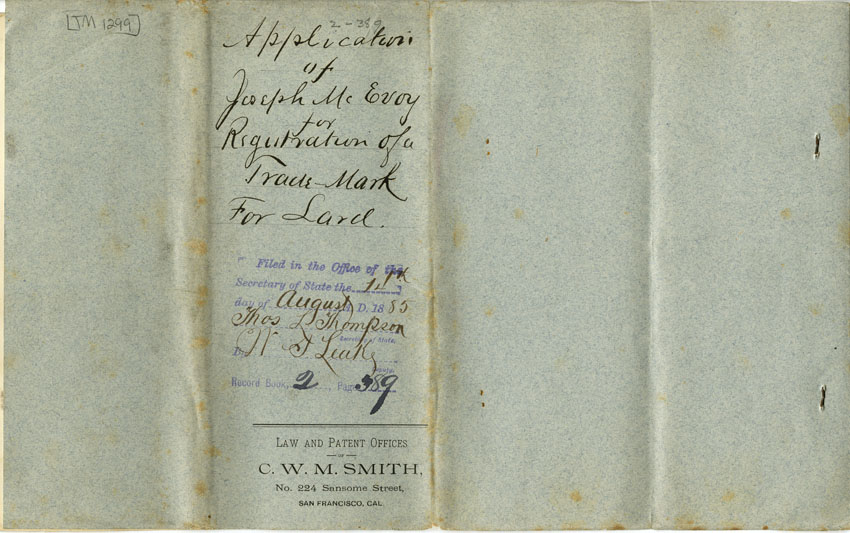 [TM 1299]
2-389
Application
of
Joseph Mc Evoy
for
Registration of a
Trade-Mark
For Lard.
Filed in the Office of the
Secretary of State the
day of August D. 1885
Thos L Thompson
Secretary of State.
W. T. Leake
Deputy.
Record Book, 2, Page 389
LAW AND PATENT OFFICES
OF
C. W. M. SMITH,
No. 224 Sansome Street,
SAN FRANCISCO, CAL.